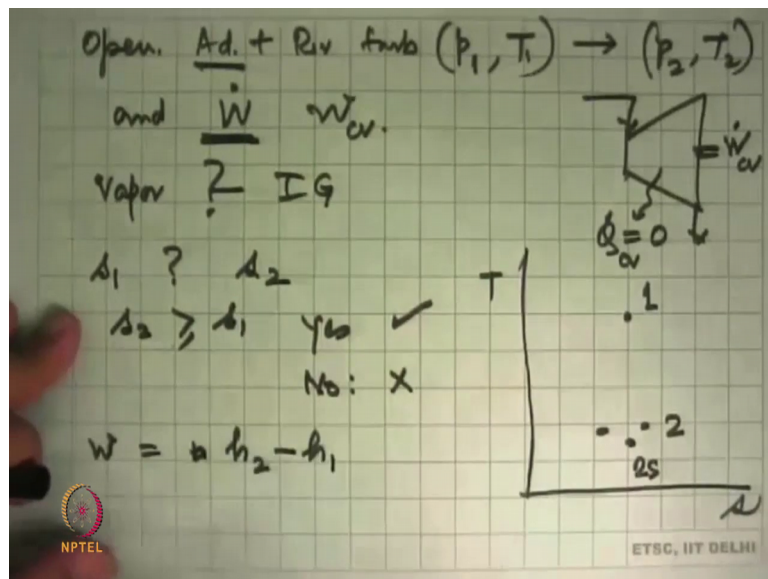 Open. Ad. + Rev turb (p₁, T₁) → (p₂, T₂)
and Ẇ W_cv.
Vapor ? IG
Ẇ_cv
Q̇_cv = 0
s₁ ? s₂
s₂ ≥ s₁ Yes ✓
No: X
W = h₂ - h₁
T
1
2
2s
s
NPTEL
ETSC, IIT DELHI